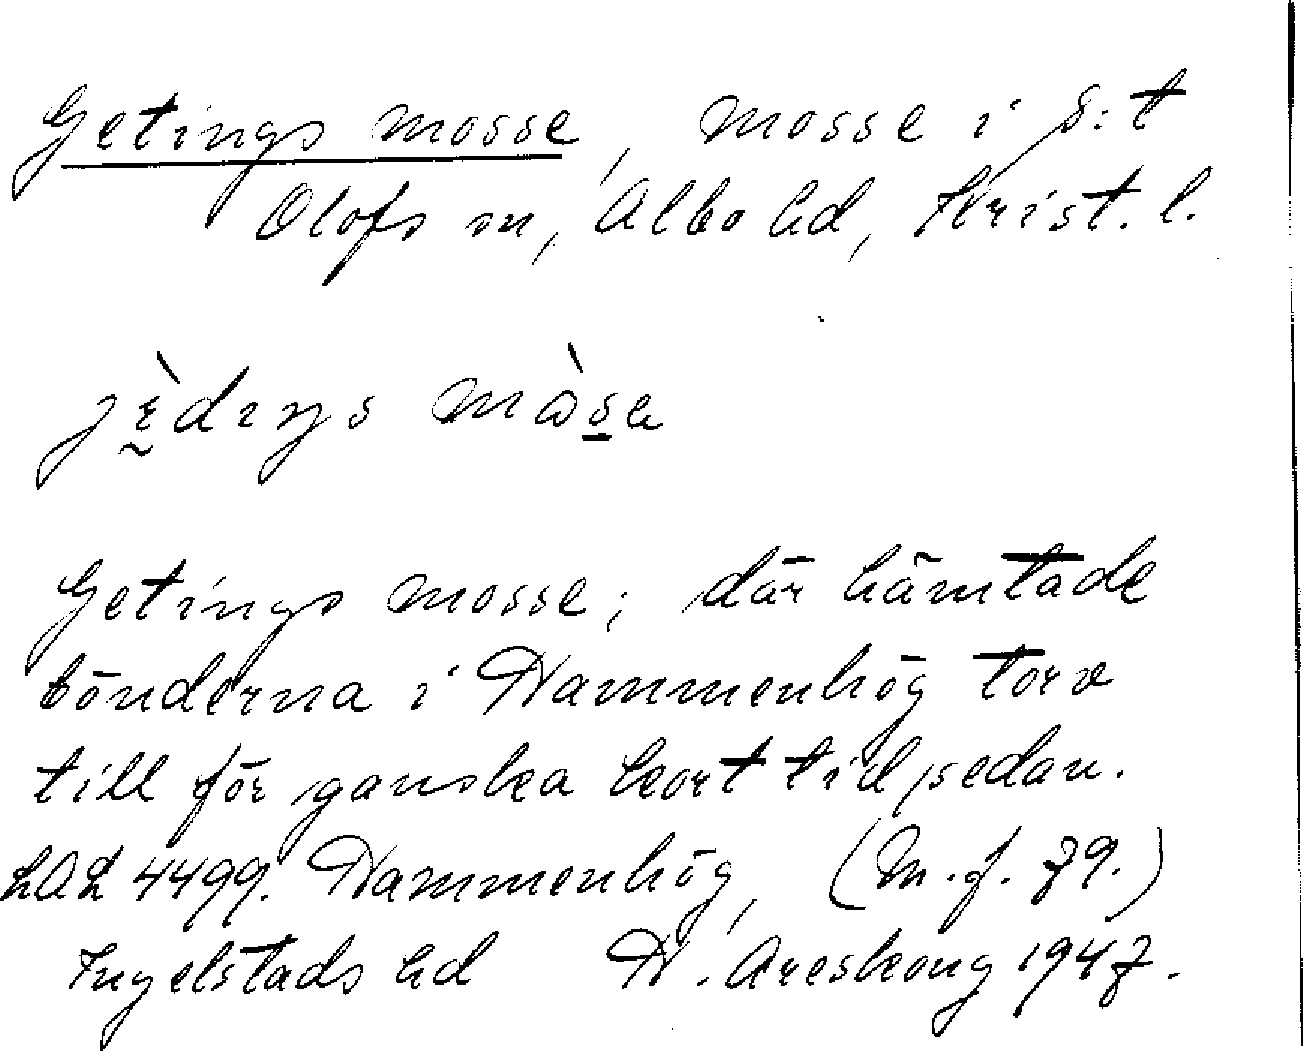 Getings mosse, mosse i S:t
Olofs sn, Albo hd, Krist. l.
jɛ̀dıŋs mòsa
Getings mosse; där hämtade
bönderna i Hammenhög torv
till för ganska kort tid sedan.
LAL 4499. Hammenhög, (M. f. 79.)
Ingelstads hd H. Areskoug 1947.